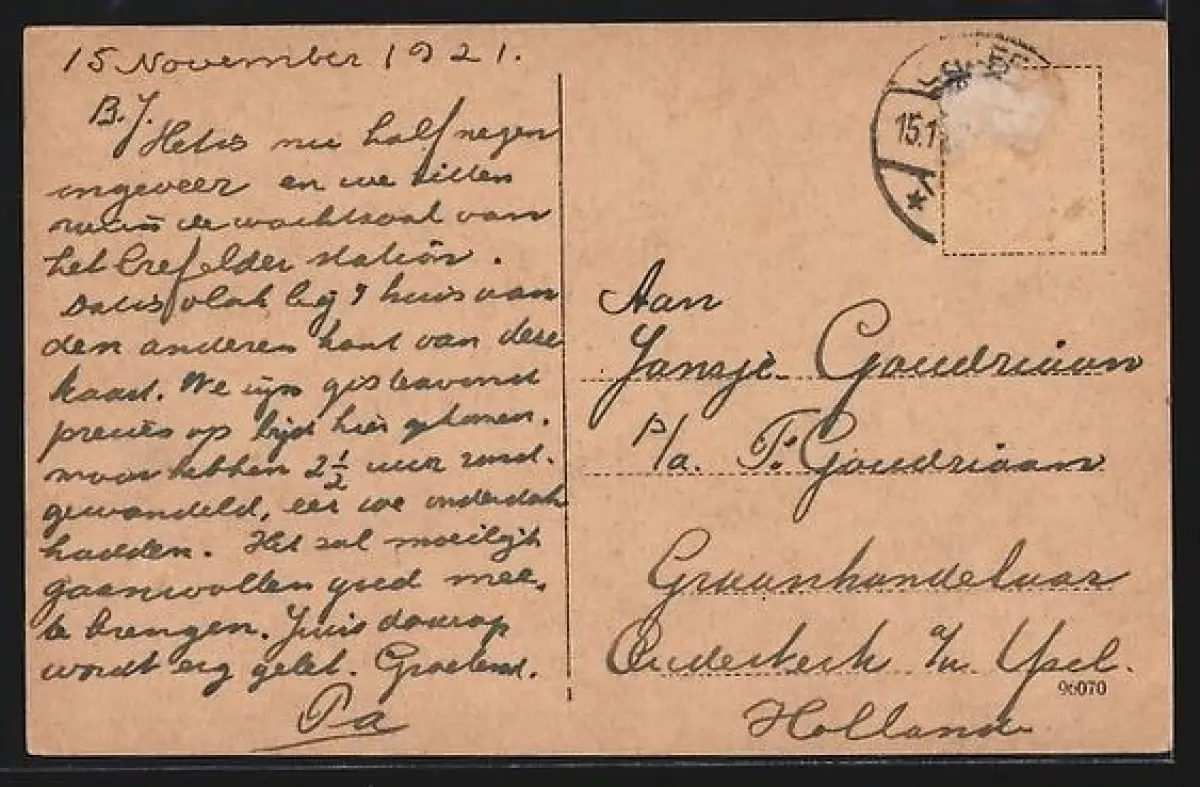 15 November 1921.
B.J.
Het is nu half negen
ongeveer en we zitten
de wachtzaal van
het Crefelder station.
Dat is vlak bij 't huis van
den anderen kant van deze
kaart. We zijn gisteravond
precies op tijd hier gekomen.
maar hebben 2 1/2 uur rond-
gewandeld, eer we onderdak
hadden. Het zal moeilijk
gaan wollen goed mee
te brengen. Juis daarop
wordt erg gelet. Groetend.
Pa
15.1
Aan
Jansje Goudriaan
p/a. T. Goudriaan
Graanhandelaar
Ouderkerk a/n Ysel.
96070
Holland